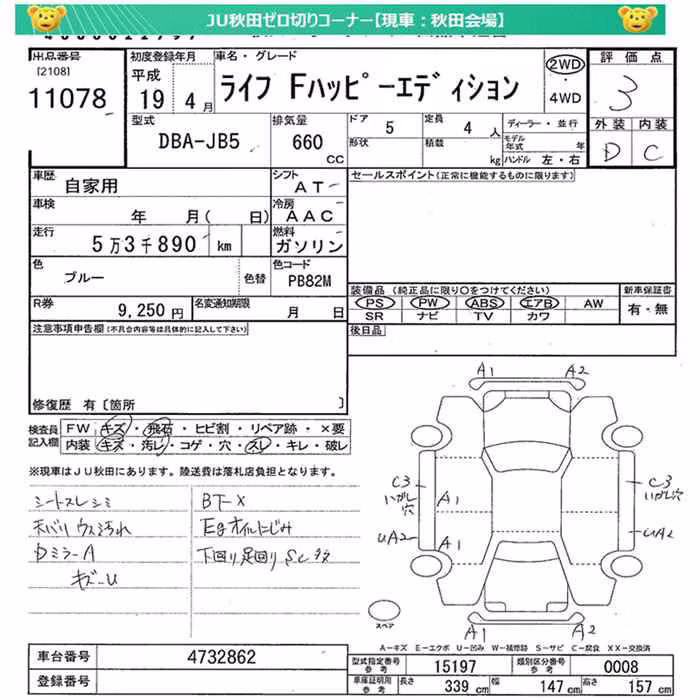 JU秋田ゼロ切りコーナー【現車：秋田会場】
出品番号 初度登録年月 車名・グレード 評価点
[2108]
11078
平成
19 4月
ライフ Fハッピーエディション
2WD
・
4WD
3
外装 内装
D C
型式
DBA-JB5
排気量
660
CC
ドア 5
定員 4 人
形状
積載 kg
ディーラー・並行
モデル年式 年
ハンドル 左・右
車歴
自家用
シフト
AT
セールスポイント(正常に機能するものに限ります)
車検
年 月( 日)
冷房
AAC
走行
5万3千890 km
燃料
ガソリン
色
ブルー
色替
色コード
PB82M
R券
9,250円
名変通知期限
月 日
装備品 (純正品に限り○をつけてください) 新車保証書
PS PW ABS エアB AW
SR ナビ TV カワ
有・無
後日品
注意事項申告欄(不具合内容等は具体的に記入して下さい)
修復歴 有[箇所 ]
検査員記入欄
FW キズ・飛石・ヒビ割・リペア跡・×要
内装 キズ・汚レ・コゲ・穴・スレ・キレ・破レ
※現車はJU秋田にあります。陸送費は落札店負担となります。
シートスレシミ
天バリウス汚れ
Dミラー A
キズーU
BT-X
Egオイルにじみ
下回り足回りSC
A1 A2
A1 A2
C3 C3
穴 穴
A1
UA2 UA2
A1
スペア
A-キズ E-エクボ U-凹み W-補修跡 S-サビ C-腐食 XX-交換済
車台番号 4732862
登録番号
型式指定番号参考 15197 類別区分番号参考 0008
車庫証明用参考 長さ 339cm 幅 147cm 高さ 157cm